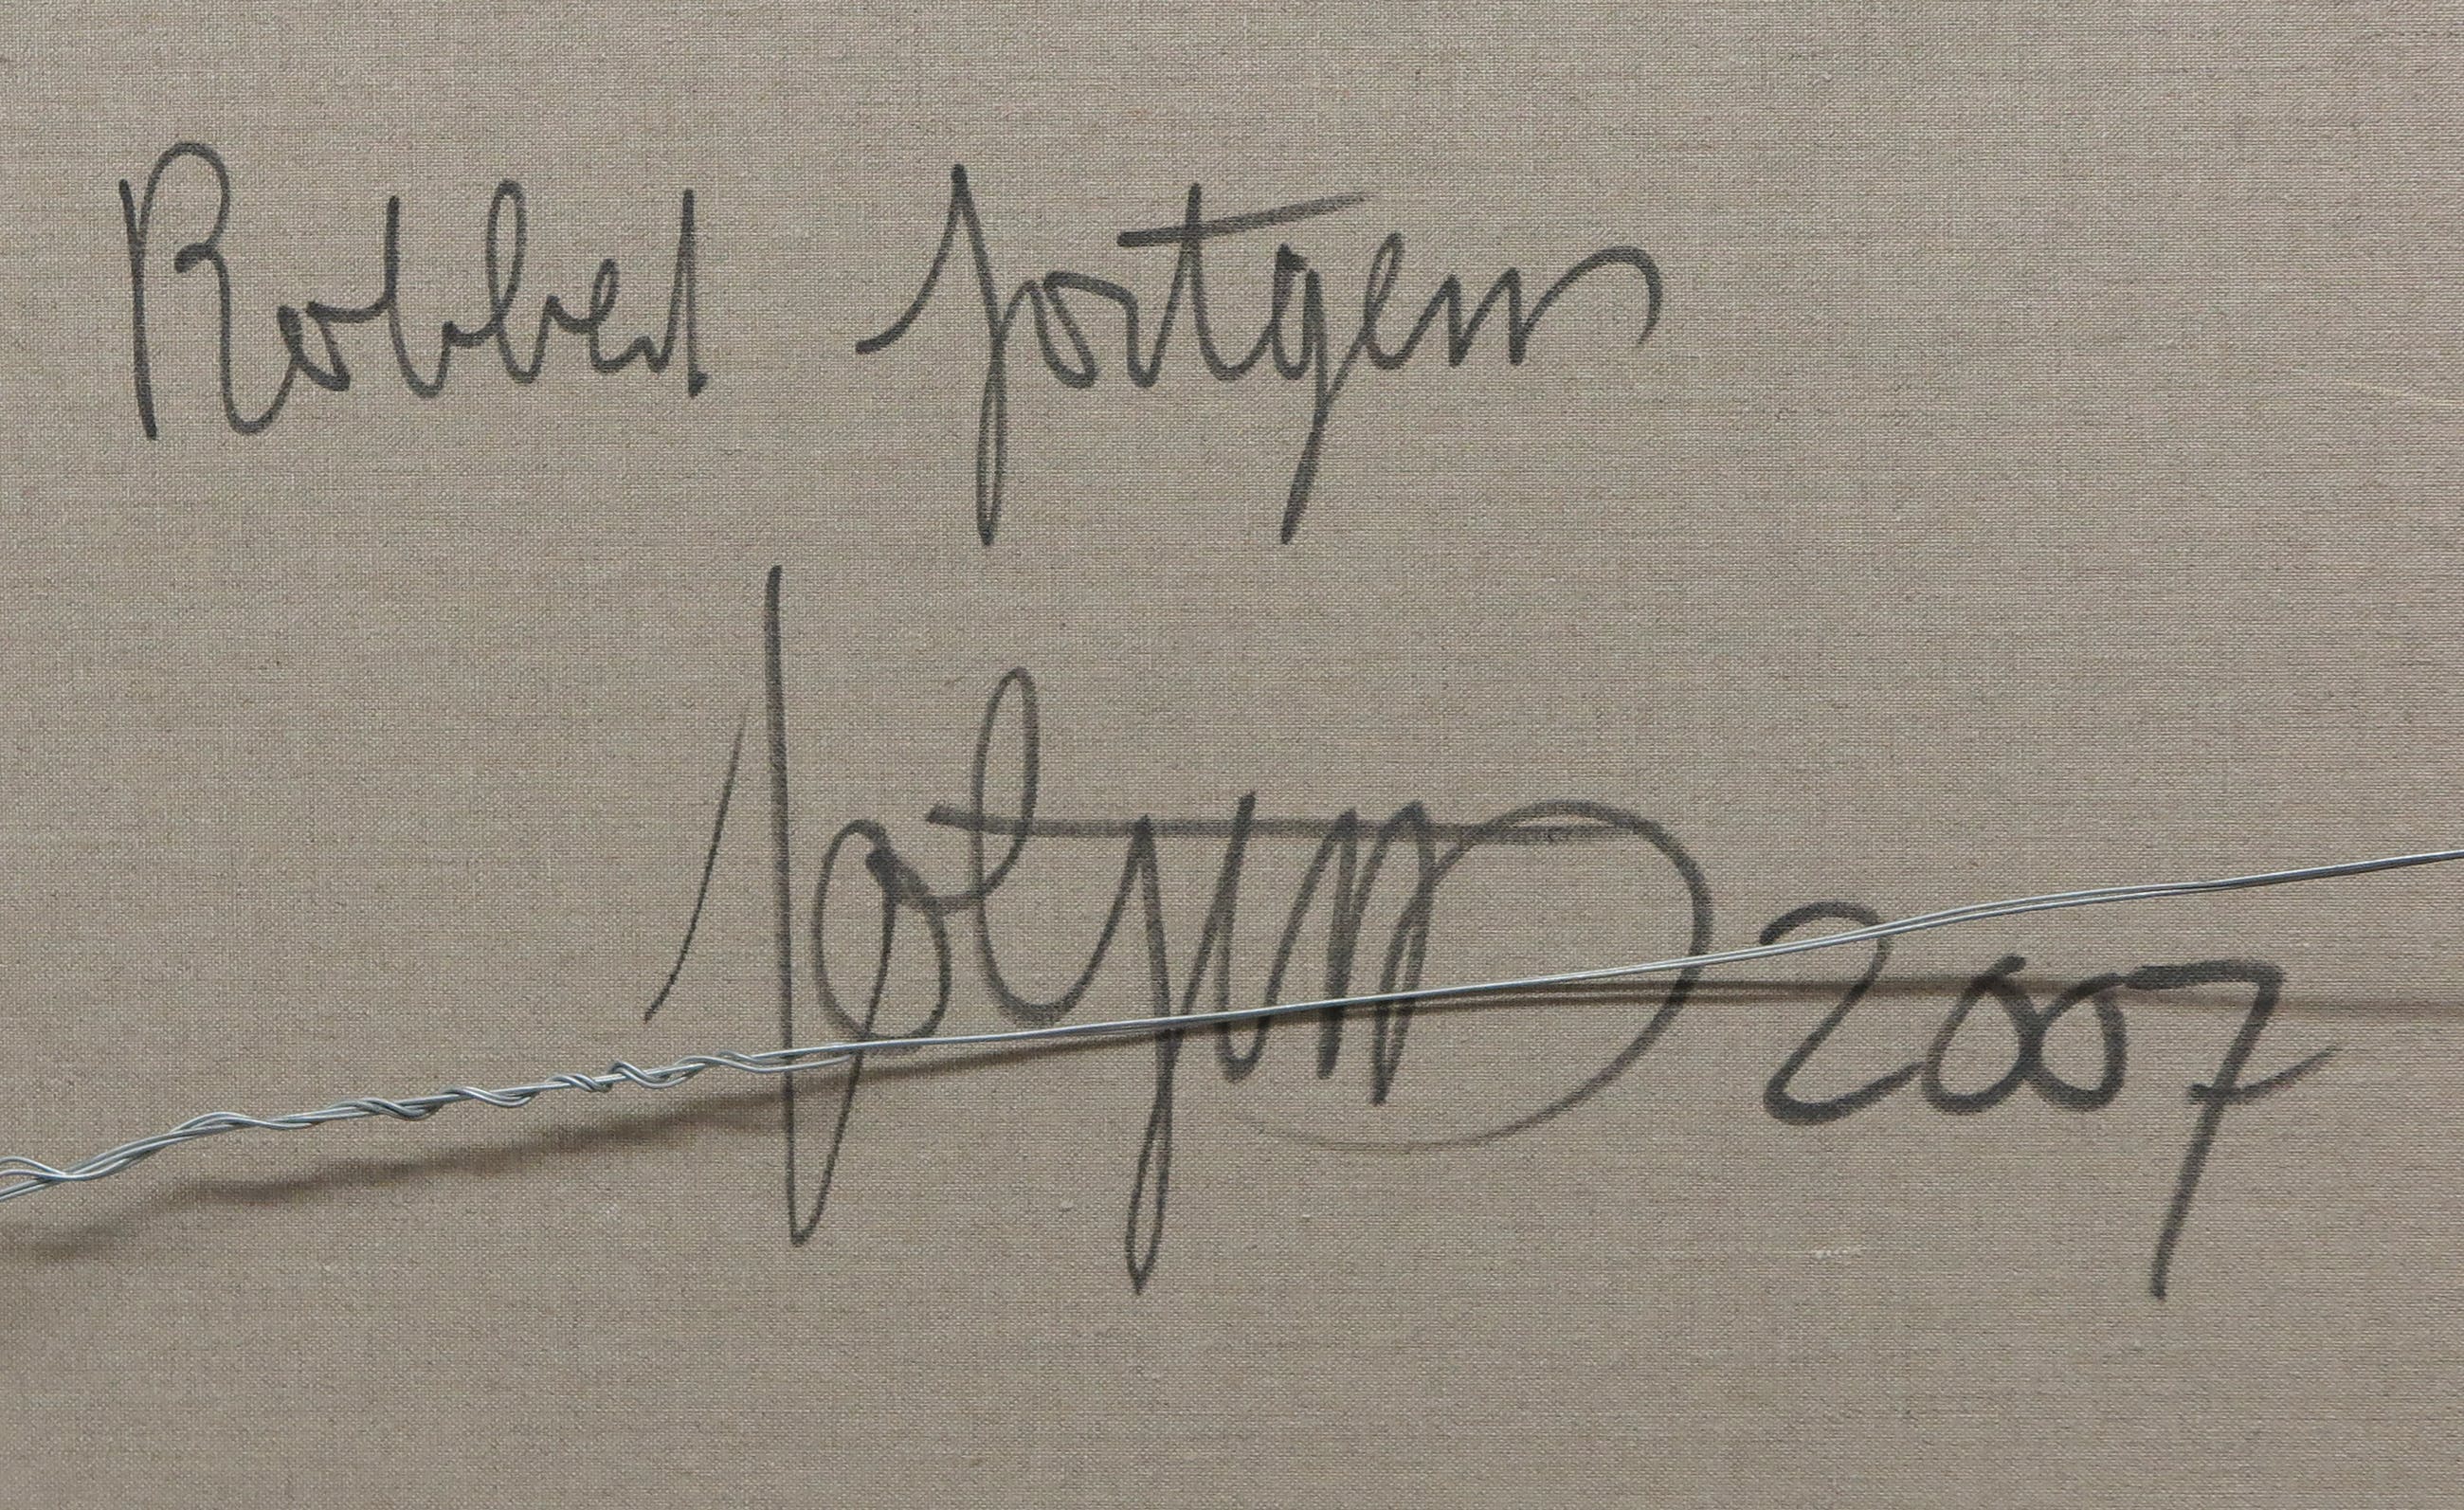 Robbert Fortgens
Fortgens 2007